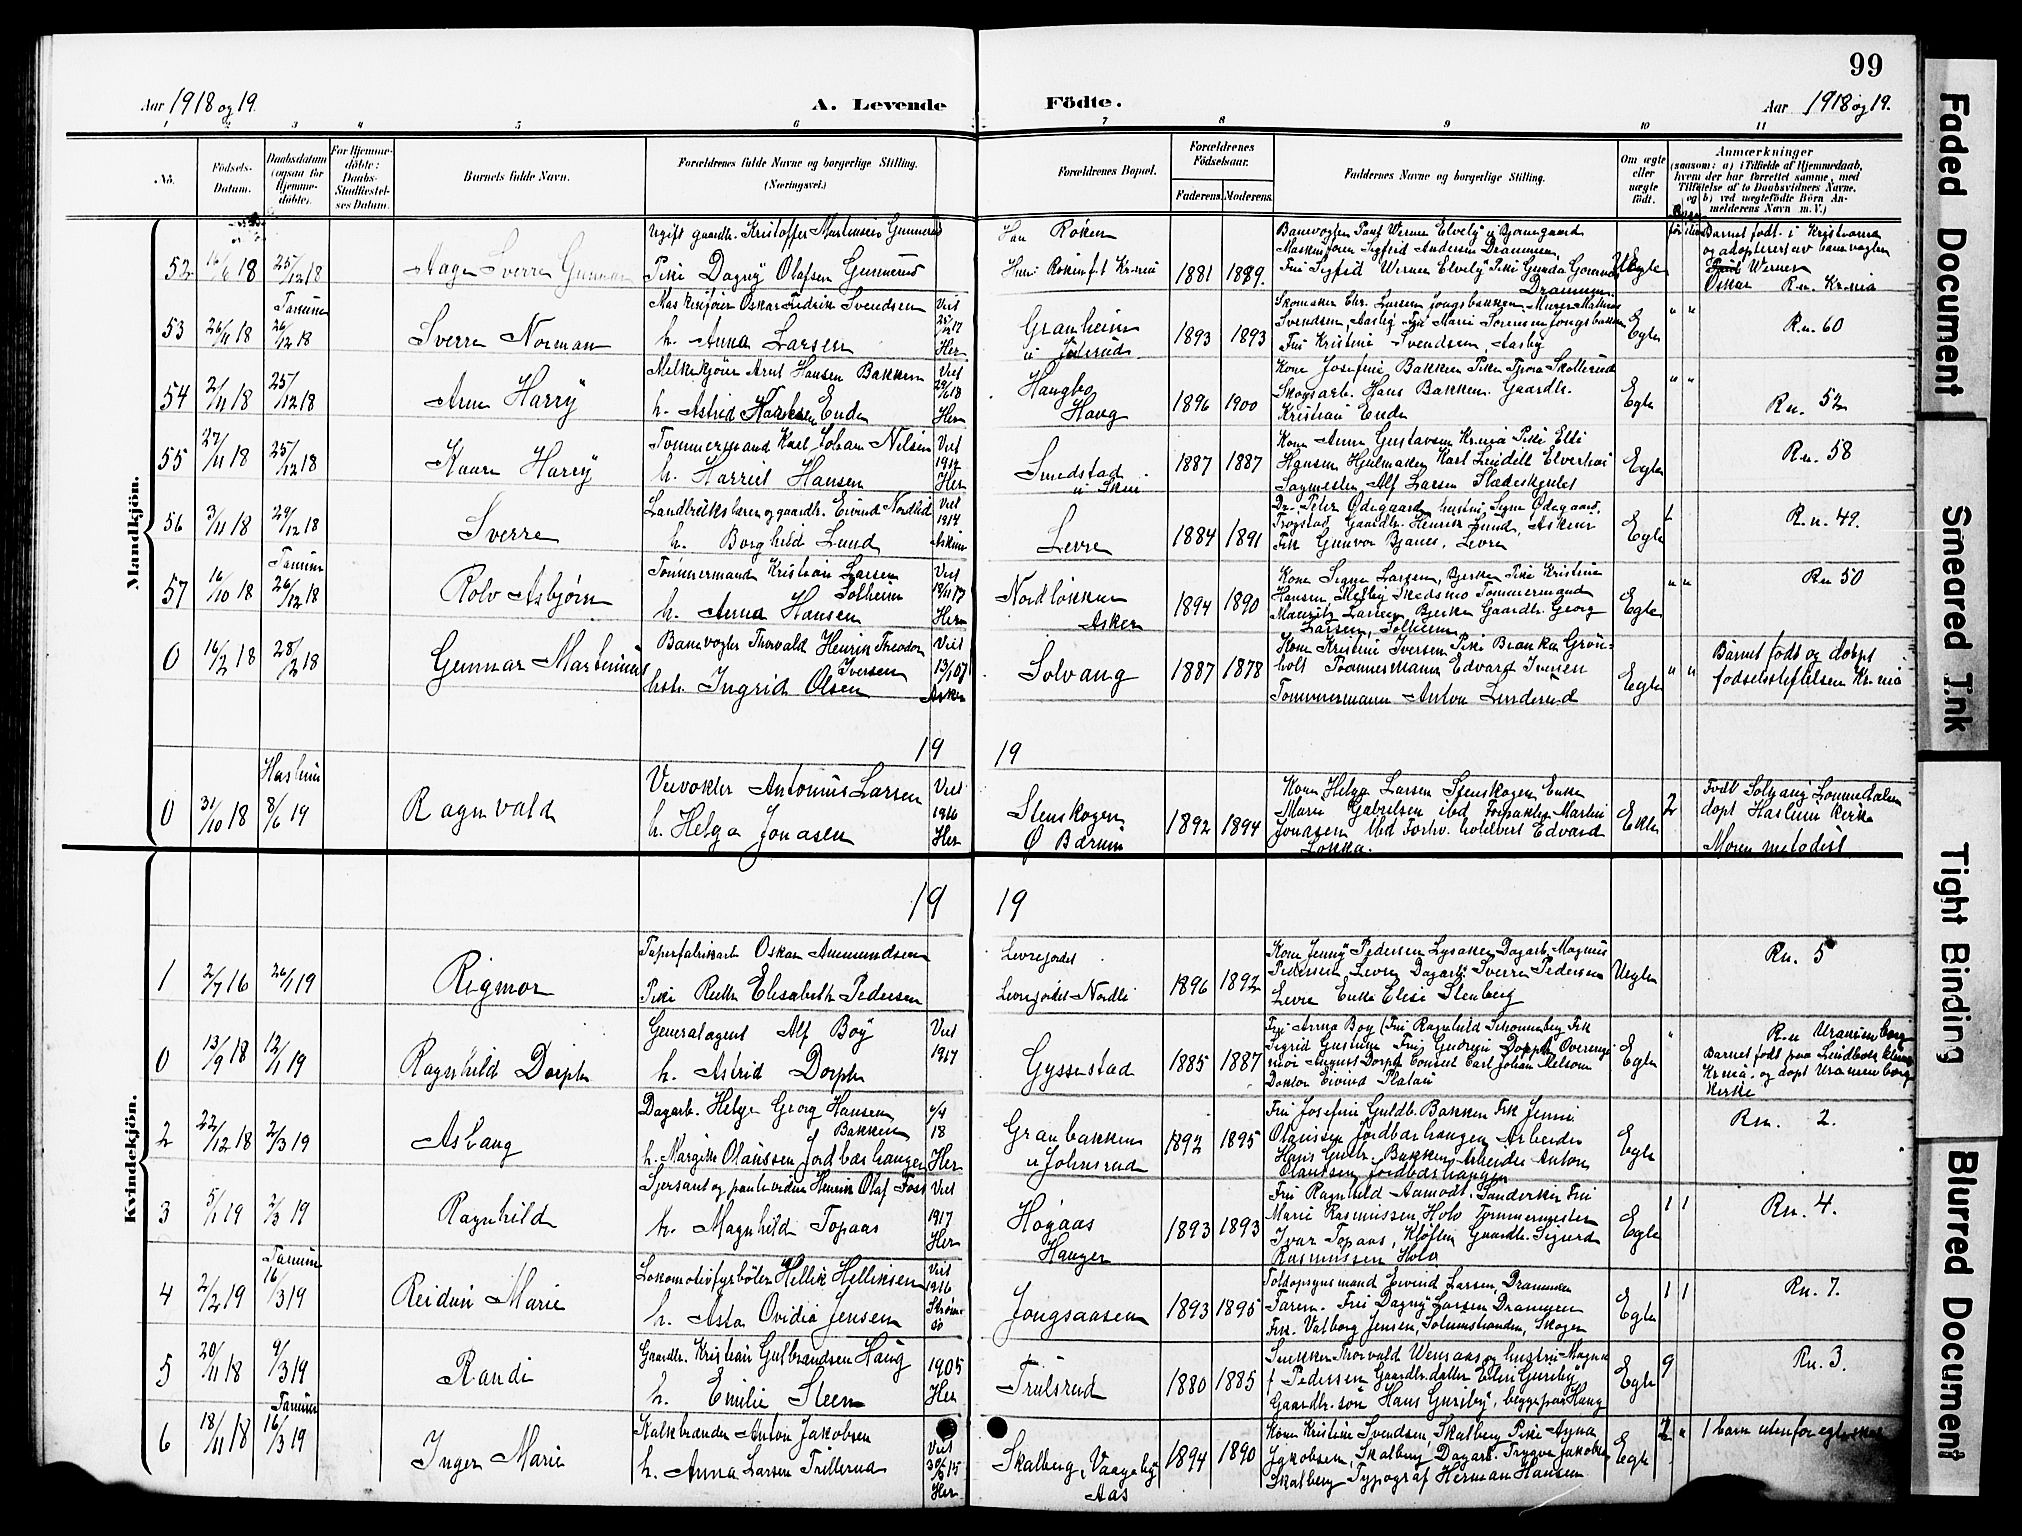 99
Aar 1918 og 19. A. Levende Födte. Aar 1918 og 19.
1 2 3 4 5 6 7 8 9 10 11
No. Födsels-Datum. Daabsdatum (ogsaa for Hjemme-döbte). For Hjemme-döbte: Daabs-Stadfæstel-ses Datum. Barnets fulde Navn. Forældrenes fulde Navne og borgerlige Stilling. (Næringsvei.) Forældrenes Bopæl. Forældrenes Födselsaar. Faderens. Moderens. Faddernes Navne og borgerlige Stilling. Om ægte eller uægte födt. Anmærkninger (saasom: a) i Tilfælde af Hjemmedaab, hvem der har forrettet samme, med Tilföielse af to Daabsvidners Navne, og b) ved uægtefödte Börn An-melderens Navn m. V.)
Mandkjön.
52 16/6 18 25/12 18 Aage Sverre Gunnar
Ugift gaardbr. Kristoffer Martinsen Gunnerud
Pike Dagny Olafsen Gunnerud
Han Röken
1881 1889.
Banevogter Paul Werner Elvely u Bjornegaard
Maskinförer Sigfrid Andersen Drammen,
Fru Sigfrid Werner Elvely Pike Gunda
Drammen
Uegte
Barnet födt i Kristiania
og adopteret av banevogter
Werner
Oskar R.n. Kr.nia
53 26/11 18 Tanum 26/12 18 Sverre Norman
Maskinförer Oskar Fredrik Svendsen
h. Anna Larsen
Viet 25/12 17 Her
Granheim
u Jelerud
1893 1893
Skomaker Chr. Larsen Jongsbakken Murer Mathias
Svendsen, Aasby Fru Marie Sorensen Jongsbakken
Fru Kristine Svendsen, Aasby
Egte " "
R.n. 60
54 2/11 18 25/12 18 Arne Harry
Melkekjörer Arnt Hansen Bakken
h. Astrid Enda
Viet 29/6 18 Her
Haugbo
Haug
1896 1900
Kone Josefine Bakken Pike Thora Skollerud
Skogsarb. Hans Bakken Gaardbr.
Kristian Enda
Egte " "
R.n. 52
55 27/11 18 25/12 18 Kaare Harry
Tömmermand Karl Johan Nilsen
h. Harriet Hansen
Viet 1912 Her
Smedstad
u Skui
1887 1887
Kone Anna Gustavsen Kr.nia Pike Elli
Hansen Hjulmaker Karl Lindell Elverhöi
Sagmester Alf Larsen Sladeskjulet
Egte
R.n. 58
56 3/11 18 29/12 18 Sverre
Landbrukslærer og gaardbr. Eivind Nordlid
h. Borghild Lund
Viet 1914 Askim
Levre
1884 1891
Dr. Peter Ödegaard hustru Signe Ödegaard,
Trogstad Gaardbr. Henrik Lund, Askim
Frk Gunvor Bjanes, Levre
Egte 1
R.n. 49.
57 16/10 18 Tanum 26/12 18 Rolv Asbjörn
Tömmermand Kristian Larsen
Solheim
h. Anna Hansen
Viet 18/11 17 Her
Nordlokken
Asker
1894 1890
Kone Signe Larsen, Bjerke Pike Kristine
Hansen Skedsmo Tömmermand
Mauritz Larsen Bjerke Gaardbr. Georg
Larsen, Solheim
Egte " "
R.n 50
0 16/2 18 28/2 18 Gunnar Martinius
Banevogter Thorvald Henrik Theodor
Iversen
hstr. Ingrid Olsen
Viet 13/1 07 Asker
Solvang
1887 1878
Kone Kristine Iversen Pike Branka Grön-
holt Tömmermann Edvard Iversen
Tömmermann Anton Linderud
Egte " "
Barnet födt og döpt
födselsstiftelsen Kr.nia
19 19
0 31/10 18 Haslum 8/6 19 Ragnvald
Veivokter Antonius Larsen
h. Helga Jonasen
Viet 1916 Her
Stenskogen
Ö Bærum
1892 1894
Kone Helga Larsen Stenskogen Enke
Marie Gabrielsen ibd Forpakter Martin
Jonasen ibd Forhv. hotelvert Edvard
Lokka.
Ekte 2
Födt Solvang Lommedalen
döpt Haslum Kirke
Moren metodist
Kvindekjön.
19 19
1 2/7 16 26/1 19 Rigmor
Papirfabrikarb. Oskar Ammundsen
Pike Ruth Elisabeth Pedersen
Levrejordet
Levrejordet Nordli
1896 1892
Kone Jenny Pedersen Lysaker Dagarb. Magnus
Pedersen Levre Dagarb. Sverre Pedersen
Levre Enke Elise Stenberg
Uegte
R.n. 5
0 13/9 18 12/1 19 Ragnhild Dorph
Generalagent Alf Boy
h. Astrid Dorph
Viet 1917
Gyssestad
1885 1887
Fru Anna Boy Fru Ragnhild Schonneberg Frk
Sigrid Fru Gudrun Dorph Overingi-
niör August Dorph Consul Carl Johan Melsom
Doktor Eivind Platou
Egte "
R.n Uranienborg
Barnet födt paa Lindboes klinik
Kr.nia og döpt Uranienborg
Kirke
2 22/12 18 2/3 19 Aslaug
Dagarb. Helge Georg Hansen
Bakken
h. Margit Olaussen Jordbærhaugen
6/4 18 Her
Granbakken
u Johnsrud
1892 1895
Fru Josefine Guldb. Bakken Frk Jenni
Olaussen Jordbærhaugen Arbeider
Hans Guldbr. Bakken Arbeider Anton
Olaussen Jordbærhaugen
Egte
R.n. 2.
3 5/1 19 2/3 19 Ragnhild
Sjersant og Henrik Olaf Foss
h. Magnhild Topaas
Viet 1917 Her
Högaas
Hauger
1893 1893
Fru Ragnhild Aamodt, Sanderskin Fru
Marie Rasmussen Holo Tömmermester
Ivar Topaas, Klöften Gaardbr. Sigurd
Rasmussen Holo
Egte 1 1
R.n. 4.
4 2/2 19 Tanum 16/3 19 Reidun Marie
Lokomotivfyrböter Hellik Helliksen
h. Asta Ovidia Jensen
Viet 1916 Strömsö
Jongsaasen
1893 1895
Toldopsynsmand Eivind Larsen, Drammen
Farm. Fru Dagny Larsen Drammen
Frk. Valborg Jensen, Solumstranden, Skoger
Egte 1 1
R.n. 7.
5 20/11 18 9/3 19 Randi
Gaardbr. Kristian Gulbrandsen Haug
h. Emilie Steen
1905 Her
Trulsrud
1880 1885
Snekker Thorvald Wensaas og hustru Magna
f Pedersen Gaardbr.datter Elin Guriby
Gaardbr. sön Hans Guriby, begge paa Haug
Egte 9
R.n. 3.
6 18/11 18 Tanum 16/3 19 Inger Marie
Kalkbrænder Anton Jakobsen
h. Anna Larsen Tillerud
Viet 30/5 15 Her
Skalberg, Vaageby
Aas
1894 1890
Kone Kristine Svendsen Skalberg Pike Agna
Jakobsen, Skalberg Dagarb. Trygve Jakobsen
Skalberg Typograf Herman Hansen
Egte 2 "
1 barn utenfor egteskab
Faded Document
Smeared Ink
Tight Binding
Blurred Document